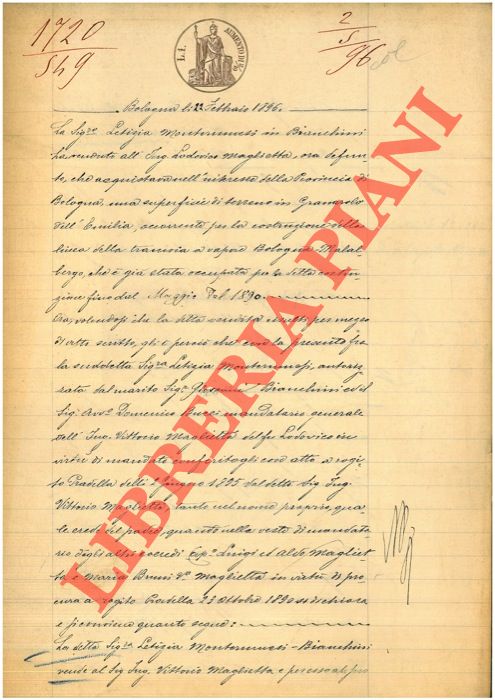 1720
549
L. 1.
AUMENTO DI 2/10
2
5
96
col
Bologna li 22 Febbraio 1896.
La Sig.ra Letizia Montermusi in Bianchini
ha venduto all' Ing. Lodovico Maglietta, ora defun-
to, che acquistava nell'interesse della Provincia di
Bologna, una superficie di terreno in Granarolo
dell' Emilia, occorrente per la costruzione della
linea della tramvia a vapore Bologna Malal-
bergo, che è già stata occupata per la detta costru-
zione fino dal Maggio del 1890.
Ora, volendosi che la detta vendita risulti per mezzo
di atto scritto, gli è perciò che con la presente fra
la suddetta Sig.ra Letizia Montermusi, autoriz-
zata dal marito Sig.r Giovanni Bianchini ed il
Sig. Avv. Domenico Bucci mandatario generale
dell' Ing. Vittorio Maglietta del fu Lodovico in
virtù di mandato conferitogli con atto a rogi-
to Pradella delli 2 1895 dal detto Sig. Ing.
Vittorio Maglietta, tanto nel nome proprio, qua-
le erede del padre, quanto nella veste di mandata-
rio degli altri coeredi Luigi ed Aldo Magliet-
ta e Maria Bruni V.a Maglietta in virtù di pro-
cura a rogito Pradella 23 Ottobre 1890 si dichiara
e si conviene quanto segue:
La detta Sig.ra Letizia Montermusi-Bianchini
vende al Sig. Ing. Vittorio Maglietta e per esso ai pro
LIBRERIA PIANI